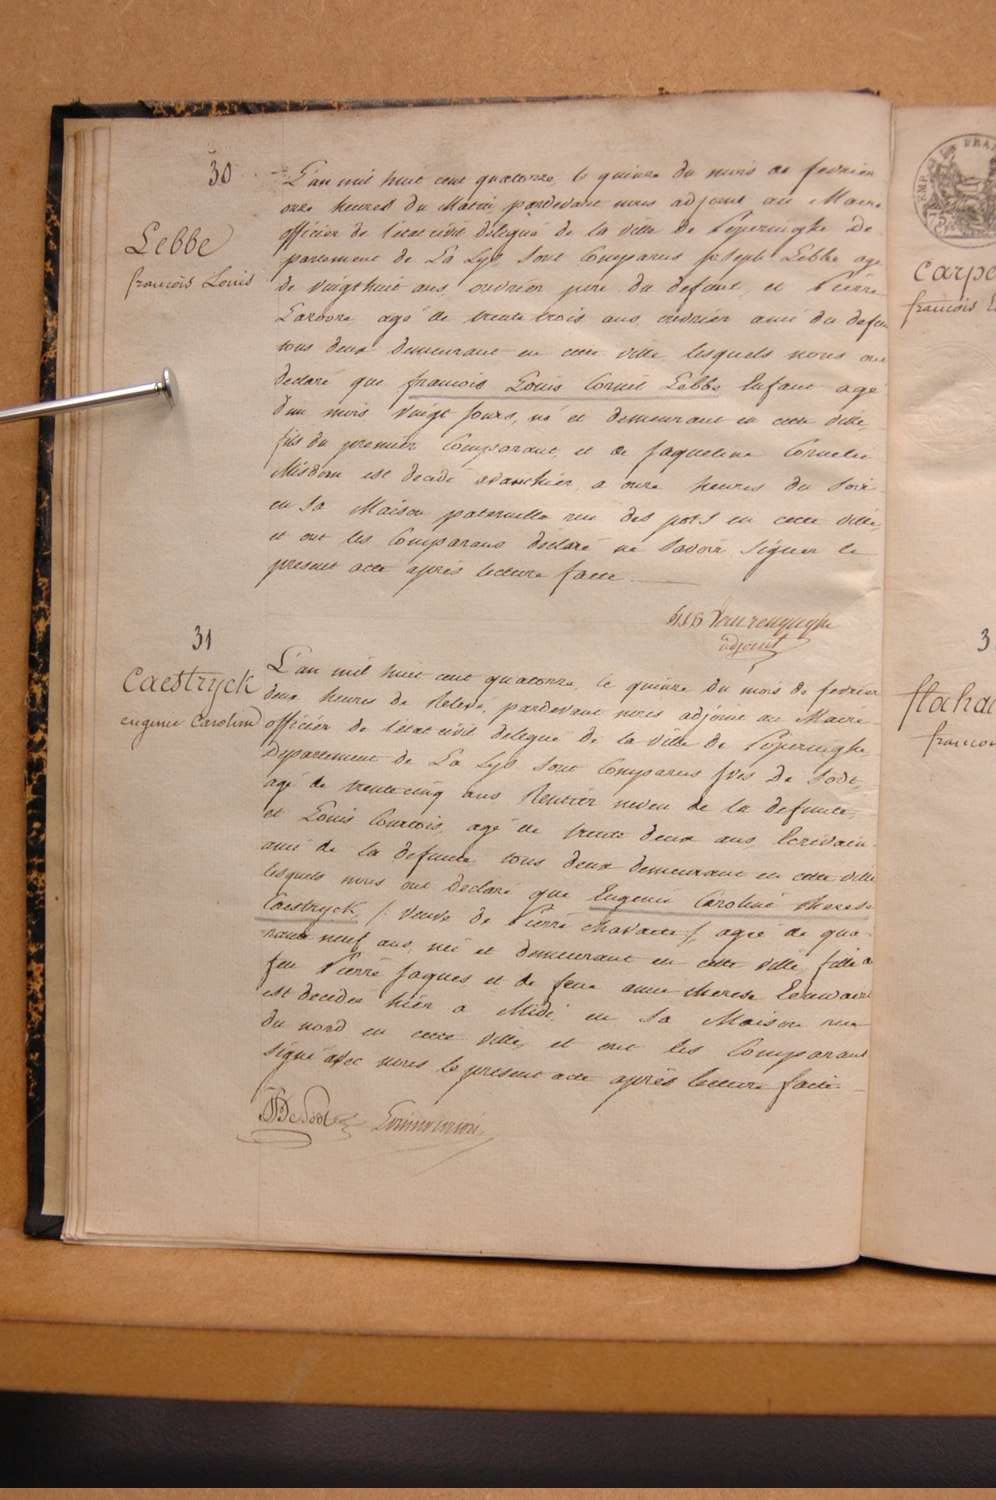 30
Lebbe
francois Louis
L'an mil huit cent quatorze, le quinze du mois de fevrier
onze heures du Matin, pardevant nous adjoint au Maire
officier de l'etat civil delegué de la ville de Poperinghe De
partement de La Lys sont Comparus Joseph Lebbe agé
de vingthuit ans, ouvrier pere du defunt, et Pierre
agé de trente trois ans, ouvrier ami du defun
tous deux Demeurant en cette ville, lesquels nous ont
declaré que francois Louis Corneil Lebbe Enfant agé
d'un mois vingt jours, né et demeurant en cette ville,
fils du premier Comparant, et de Jaqueline Cornelie
est decedé avanthier, a onze heures du soir
en sa Maison paternelle rue des pots en cette ville,
et ont les Comparans declaré ne Savoir signer le
present acte après lecture faite.
adjoint
31
Caestryck
eugenie Caroline
L'an mil huit cent quatorze, le quinze du mois de fevrier
deux heures de Relevé, pardevant nous adjoint au Maire
officier de l'etat civil delegué de la ville de Poperinghe,
Departement de La Lys sont Comparus De Sodt,
agé de trente cinq ans Rentier neveu de la defunte,
et Louis Courtois, agé de trente deux ans, Ecrivain
ami de la defunte, tous deux demeurant en cette ville
lesquels nous ont Declaré que Eugenie Caroline therese
Caestryck /: veuve de Pierre :/, agée de qua-
rante neuf ans, née et demeurant en cette ville, fille de
feu Pierre Jaques et de feue anne therese
est decedée hier a Midi, en sa Maison rue
du nord en cette ville, et ont les Comparans
signé avec nous le present acte après lecture faite.
De Sodt
Carpe
francois
3
flaha
francoi